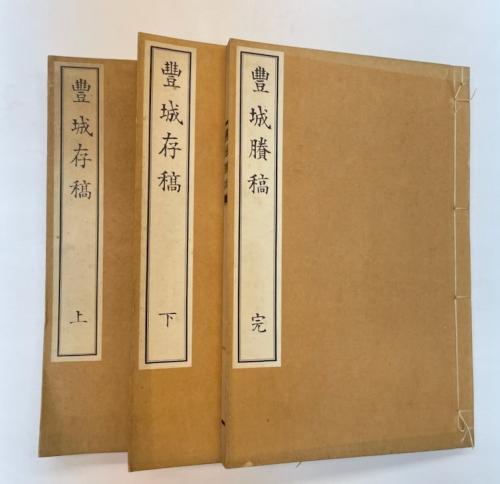 豐城存稿
上
豐城存稿
下
豐城賸稿
完